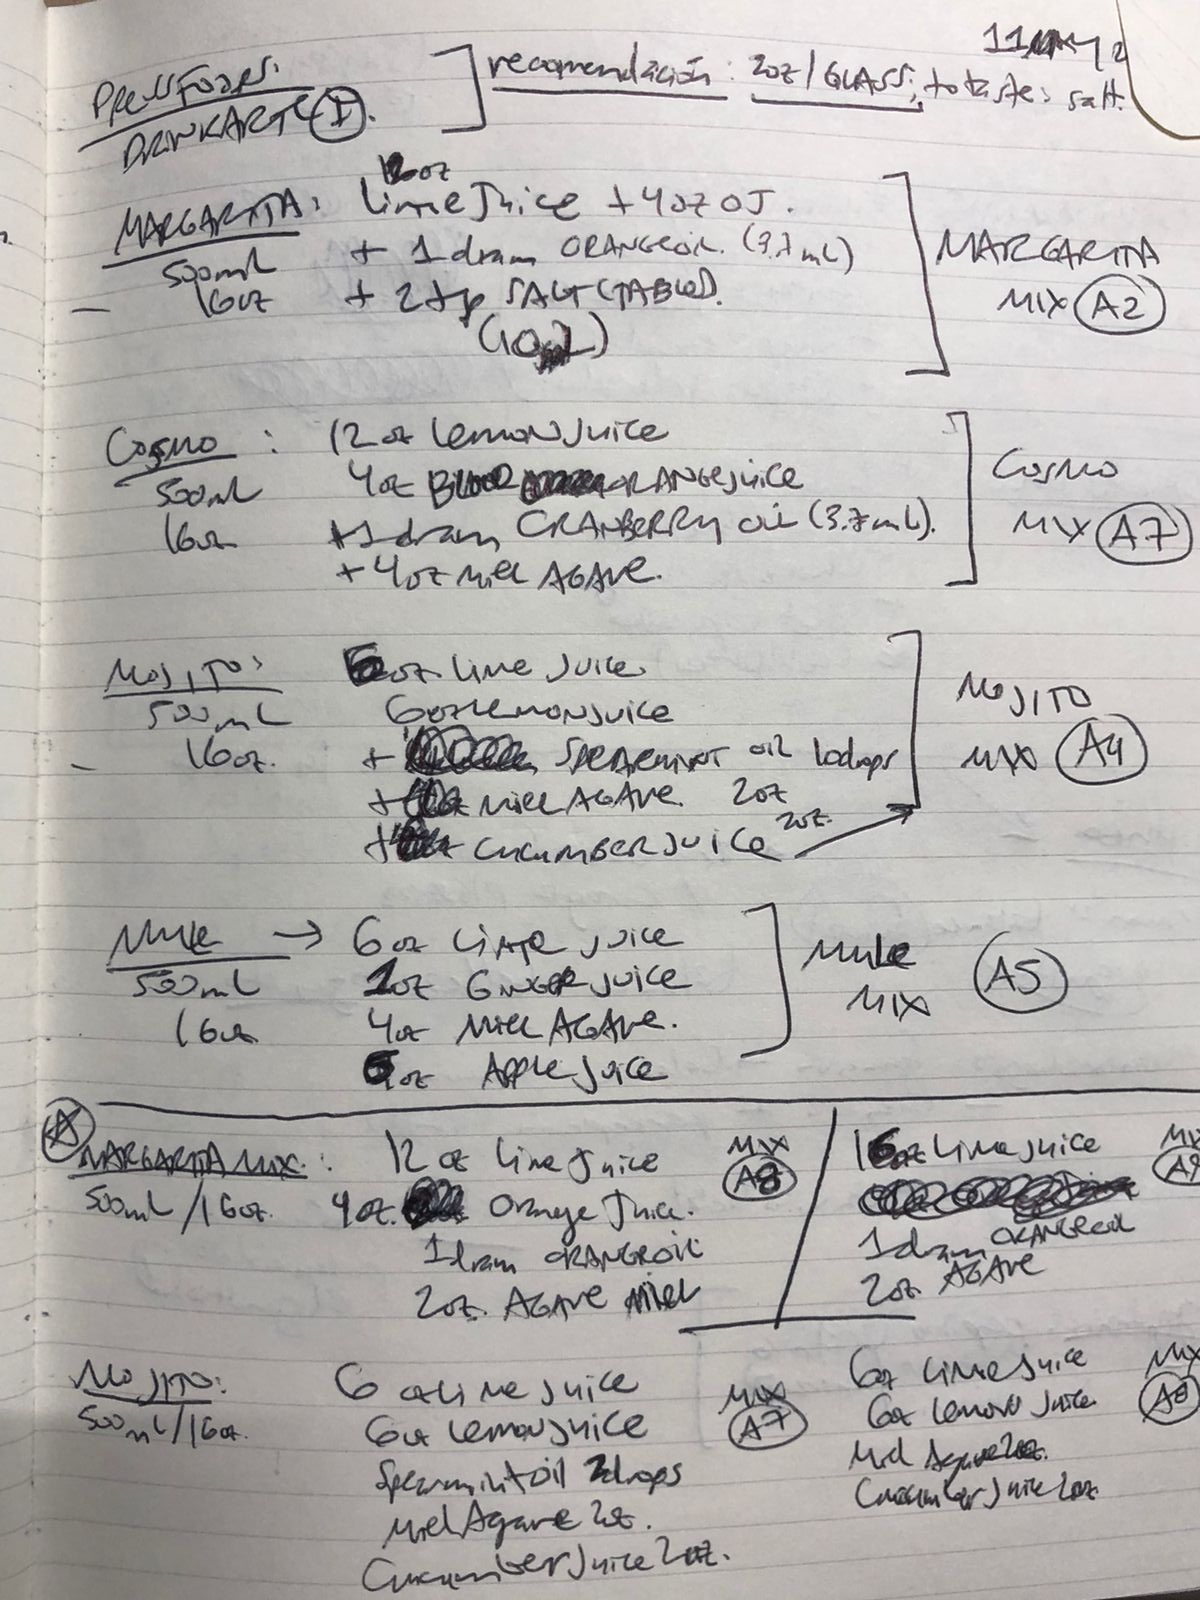 11 MAY 2
PRESSFOODS:
DRINKARTE I.
recomendación: 2oz/GLASS; to taste: salt.
12oz
MARGARITA: Lime Juice + 4oz OJ.
500mL + 1 dram ORANGEOIL. (3.7mL)
16oz + 2 tsp SALT (TABLES).
(10
MARGARITA
MIX A2
COSMO: 12 oz LEMON JUICE
500mL 4oz BLOOD ORANGE JUICE
16oz +1 dram CRANBERRY OIL (3.7mL).
+ 4oz MIEL AGAVE.
COSMO
MIX A7
MOJITO: 6oz. LIME JUICE
500mL 6oz LEMON JUICE
16oz. + SPEARMINT OIL 10drops
+ MIEL AGAVE. 2oz
+ CUCUMBER JUICE 2oz.
MOJITO
MIX A4
MULE → 6oz LIME JUICE
500mL 1oz GINGER JUICE
16oz 4oz MIEL AGAVE.
6oz APPLE JUICE
MULE
MIX A5
A
MARGARITA MIX: 12 oz Lime Juice
500mL/16oz. 4oz. Orange Juice.
1dram ORANGEOIL
2oz. AGAVE MIEL
MIX
A8
16oz Lime Juice
1dram ORANGEOIL
2oz AGAVE
MIX
A9
MOJITO: 6 oz Lime Juice
500mL/16oz. 6oz Lemon Juice
Spearmint oil 2drops
Miel Agave 2oz.
Cucumber Juice 2oz.
MIX
A7
6oz Lime Juice
6oz Lemon Juice
Miel Agave 2oz.
Cucumber Juice 2oz
MIX
A8